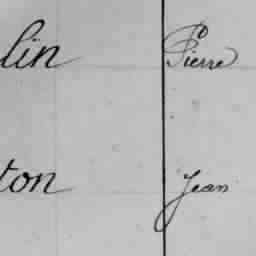 lin Pierre
ton Jean